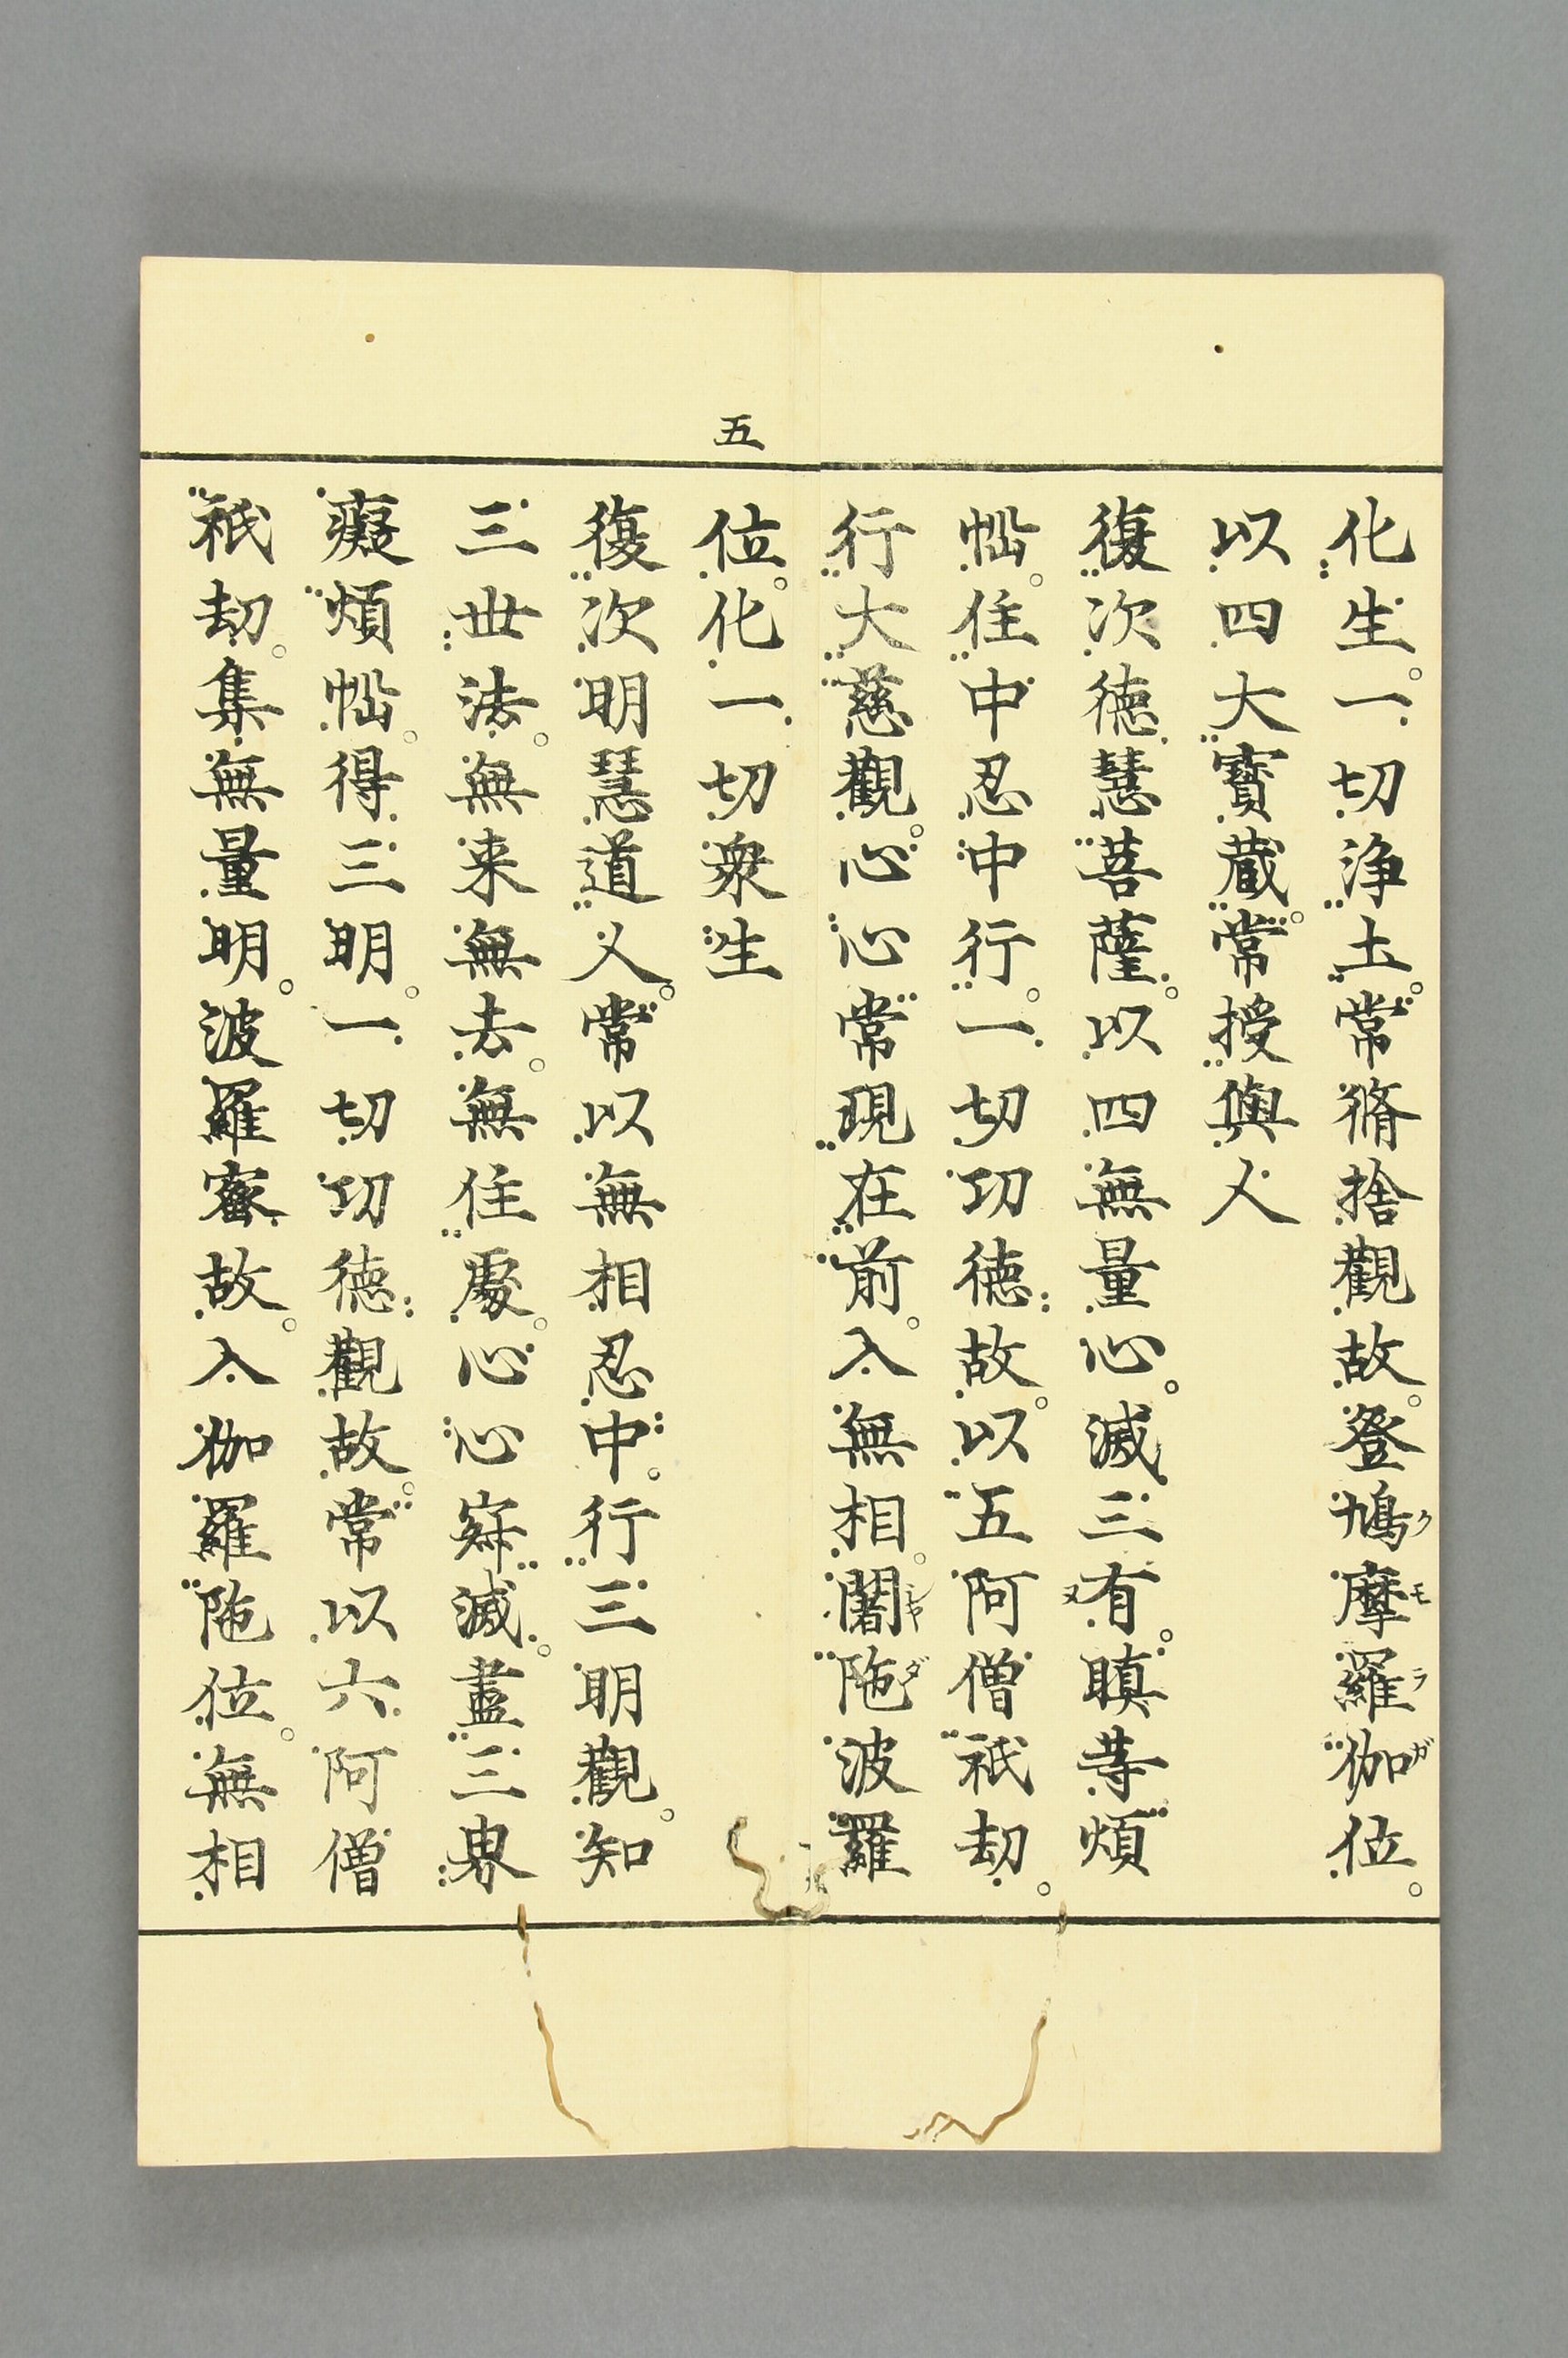 化生。一切淨土。常脩捨觀故。登鳩摩羅伽位。
クモラガ
以四大寶蔵。常授與人
復次徳慧菩薩。以四無量心。滅三有。瞋䒭煩
ヌ
惱。住中忍中行。一切功徳故。以五阿僧祇劫。
行大慈觀。心心常現在前。入無相。闍陁波羅
シヤダ
五
位。化一切衆生
復次明慧道人。常以無相忍中。行三明觀。知
三世法。無来無去。無住處。心心寂滅。盡三界
癡煩惱。得三明。一切功徳觀故。常以六阿僧
祇劫。集無量明。波羅蜜故。入伽羅陁位。無相